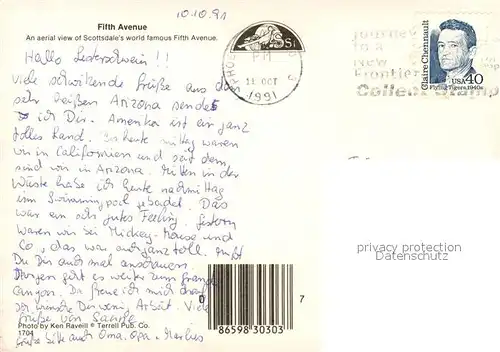 10.10.91
Fifth Avenue
An aerial view of Scottsdale's world famous Fifth Avenue.
Hallo Lesterschwein !!
Viele schwitzende Grüße aus dem
sehr heißen Arizona sendet
ich Dir. Amerika ist ein ganz
tolles Land. Bis heute mittag waren
wir in Californien und seit dem
sind wir in Arizona. Mitten in der
Wüste habe ich heute nachmittag
im Swimmingpool gebadet. Das
war ein sehr gutes Feeling. Gestern
waren wir bei Mickey-Mouse und
Co, das war auch ganz toll. Mußt
Du Dir auch mal anschauen.
Morgen geht es weiter zum Grand
Canyon. Da freue ich mich drauf
wünsche Dir wenig Arbeit. Viele
Grüße von
Photo by Ken Raveill © Terrell Pub. Co.
1704
Grüße bitte auch Oma, Opa, Markus
PHOE
PM
11 OCT
1991
Journey
to a
New
Frontier
Collect Stamp
Claire Chennault
USA 40
Flying Tigers, 1940s
privacy protection
Datenschutz
0
86598 30303
7